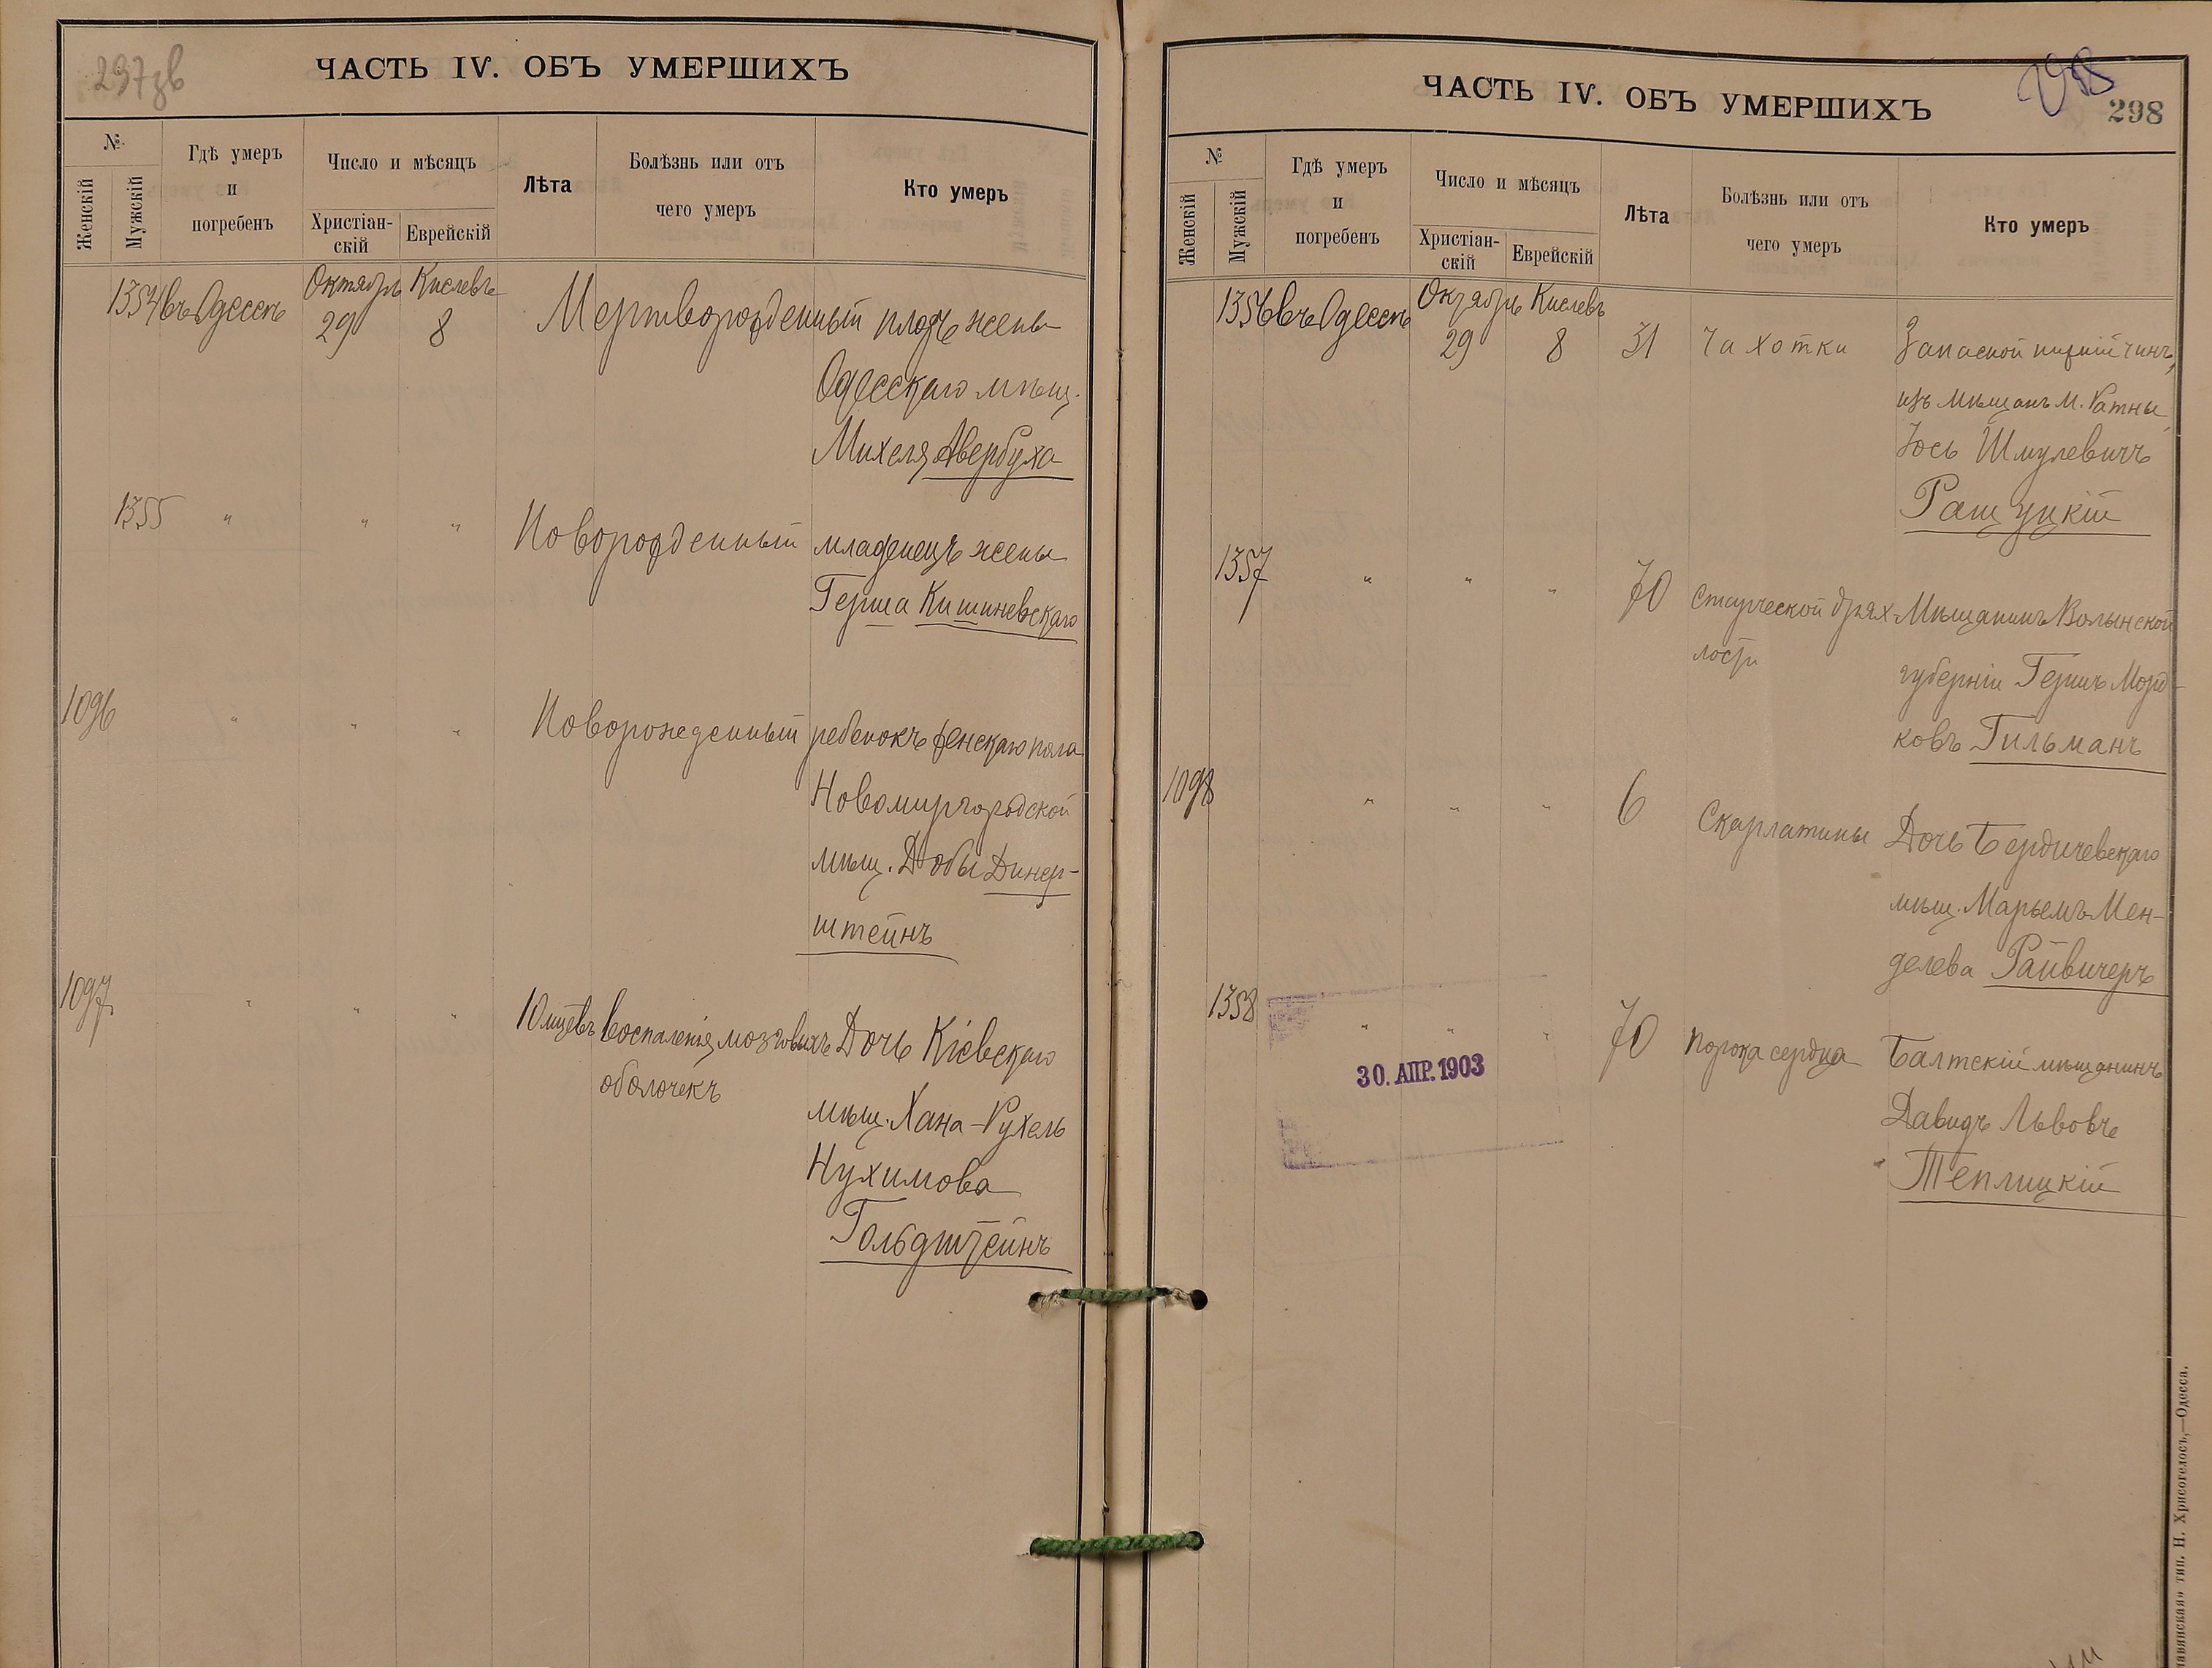 297 зв
ЧАСТЬ IV. ОБЪ УМЕРШИХЪ
№
Женскій
Мужскій
Гдѣ умеръ
и
погребенъ
Число и мѣсяцъ
Христіан-
скій
Еврейскій
Лѣта
Болѣзнь или отъ
чего умеръ
Кто умеръ
1354 въ Одессѣ Октябрь Кислевъ
29 8 Мертворожденный плодъ жены
Одесскаго мѣщ.
Михеля Авербуха
1355 " " " Новорожденный младенецъ жены
Герша Кишиневскаго
1096 " " " Новорожденный ребенокъ женскаго пола
Новомиргородской
мѣщ. Добы Динер-
штейнъ
1097 " " " 10 мцевъ Воспаленія мозговыхъ Дочь Кіевскаго
оболочекъ
мѣщ. Хана-Рухель
Нухимова
Гольдштейнъ
298
298
ЧАСТЬ IV. ОБЪ УМЕРШИХЪ
№
Женскій
Мужскій
Гдѣ умеръ
и
погребенъ
Число и мѣсяцъ
Христіан-
скій
Еврейскій
Лѣта
Болѣзнь или отъ
чего умеръ
Кто умеръ
1356 въ Одессѣ Октябрь Кислевъ
29 8 31 Чахотки Запасной нижній чинъ,
изъ мѣщанъ м. Ратны
Іось Шмулевичъ
Ращуцкій
1357 " " " 70 Старческой дрях- Мѣщанинъ Волынской
лости
губерніи Гершъ Морд-
ковъ Гильманъ
1098 " " " 6 Скарлатины Дочь Бердичевскаго
мѣщ. Марьемъ Мен-
делева Райвичеръ
1358 " " " 70 Порока сердца Балтскій мѣщанинъ
30. АПР. 1903
Давидъ Львовъ
Теплицкій
тип. Н. Хрисогелосъ,—Одесса.